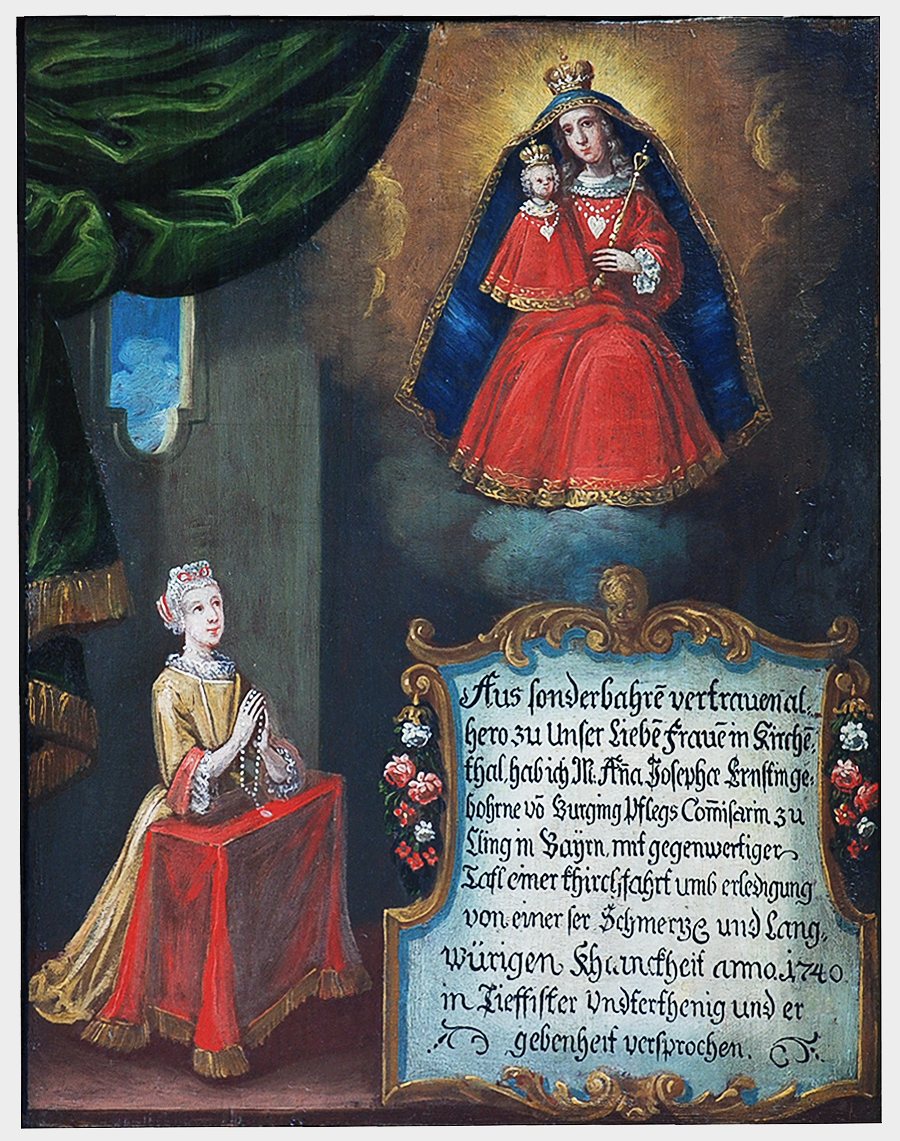 Aus sonderbahrē vertrauen al,
hero zu Unser Liebē Frauē in Kirchē,
thal, hab ich M. Aña Josepha Ernstin ge,
bohrne vō Burging Pflegs Com̄isarin zu
Cling in Bayrn, mit gegenwertiger
Tafl einer Khirchfahrt umb erledigung
von einer ser Schmerzₑ und Lang,
würigen Khranckheit anno. 1740
in Tieffister Undterthenig und er
gebenheit versprochen.